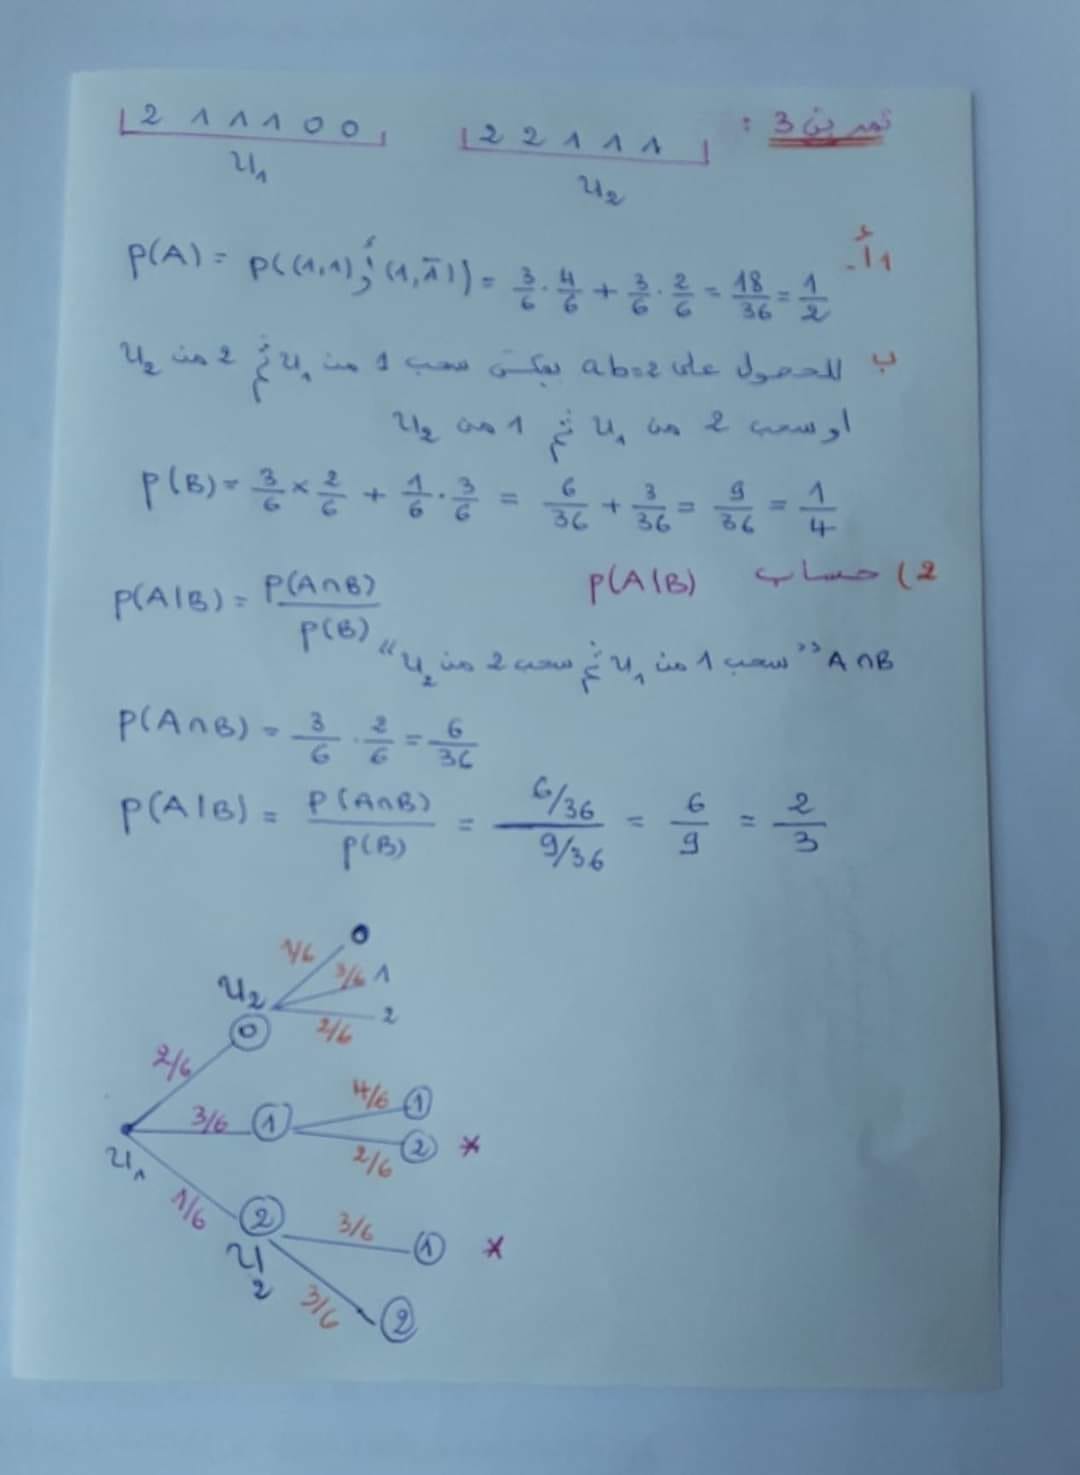 تمرين 3 :
2 1 1 1 0 0    2 2 1 1 1
U₁    U₂
1أ- p(A) = p((1,1) أو (1,1̄)) = 3/6 · 4/6 + 3/6 · 2/6 = 18/36 = 1/2
ب للحصول على ab=2 يمكن سحب 1 من U₁ ثم 2 من U₂
او سحب 2 من U₁ ثم 1 من U₂
p(B) = 3/6 × 2/6 + 1/6 · 3/6 = 6/36 + 3/36 = 9/36 = 1/4
2) حساب p(A|B)
p(A|B) = p(A∩B)/p(B)
A∩B "سحب 1 من U₁ ثم سحب 2 من U₂"
p(A∩B) = 3/6 · 2/6 = 6/36
p(A|B) = p(A∩B)/p(B) = (6/36)/(9/36) = 6/9 = 2/3
1/6 0
3/6 1
U₂ 2/6 2
0
2/6
4/6 1
3/6 1
2/6 2 *
U₁
1/6 2 3/6 1 *
U₂
3/6 2